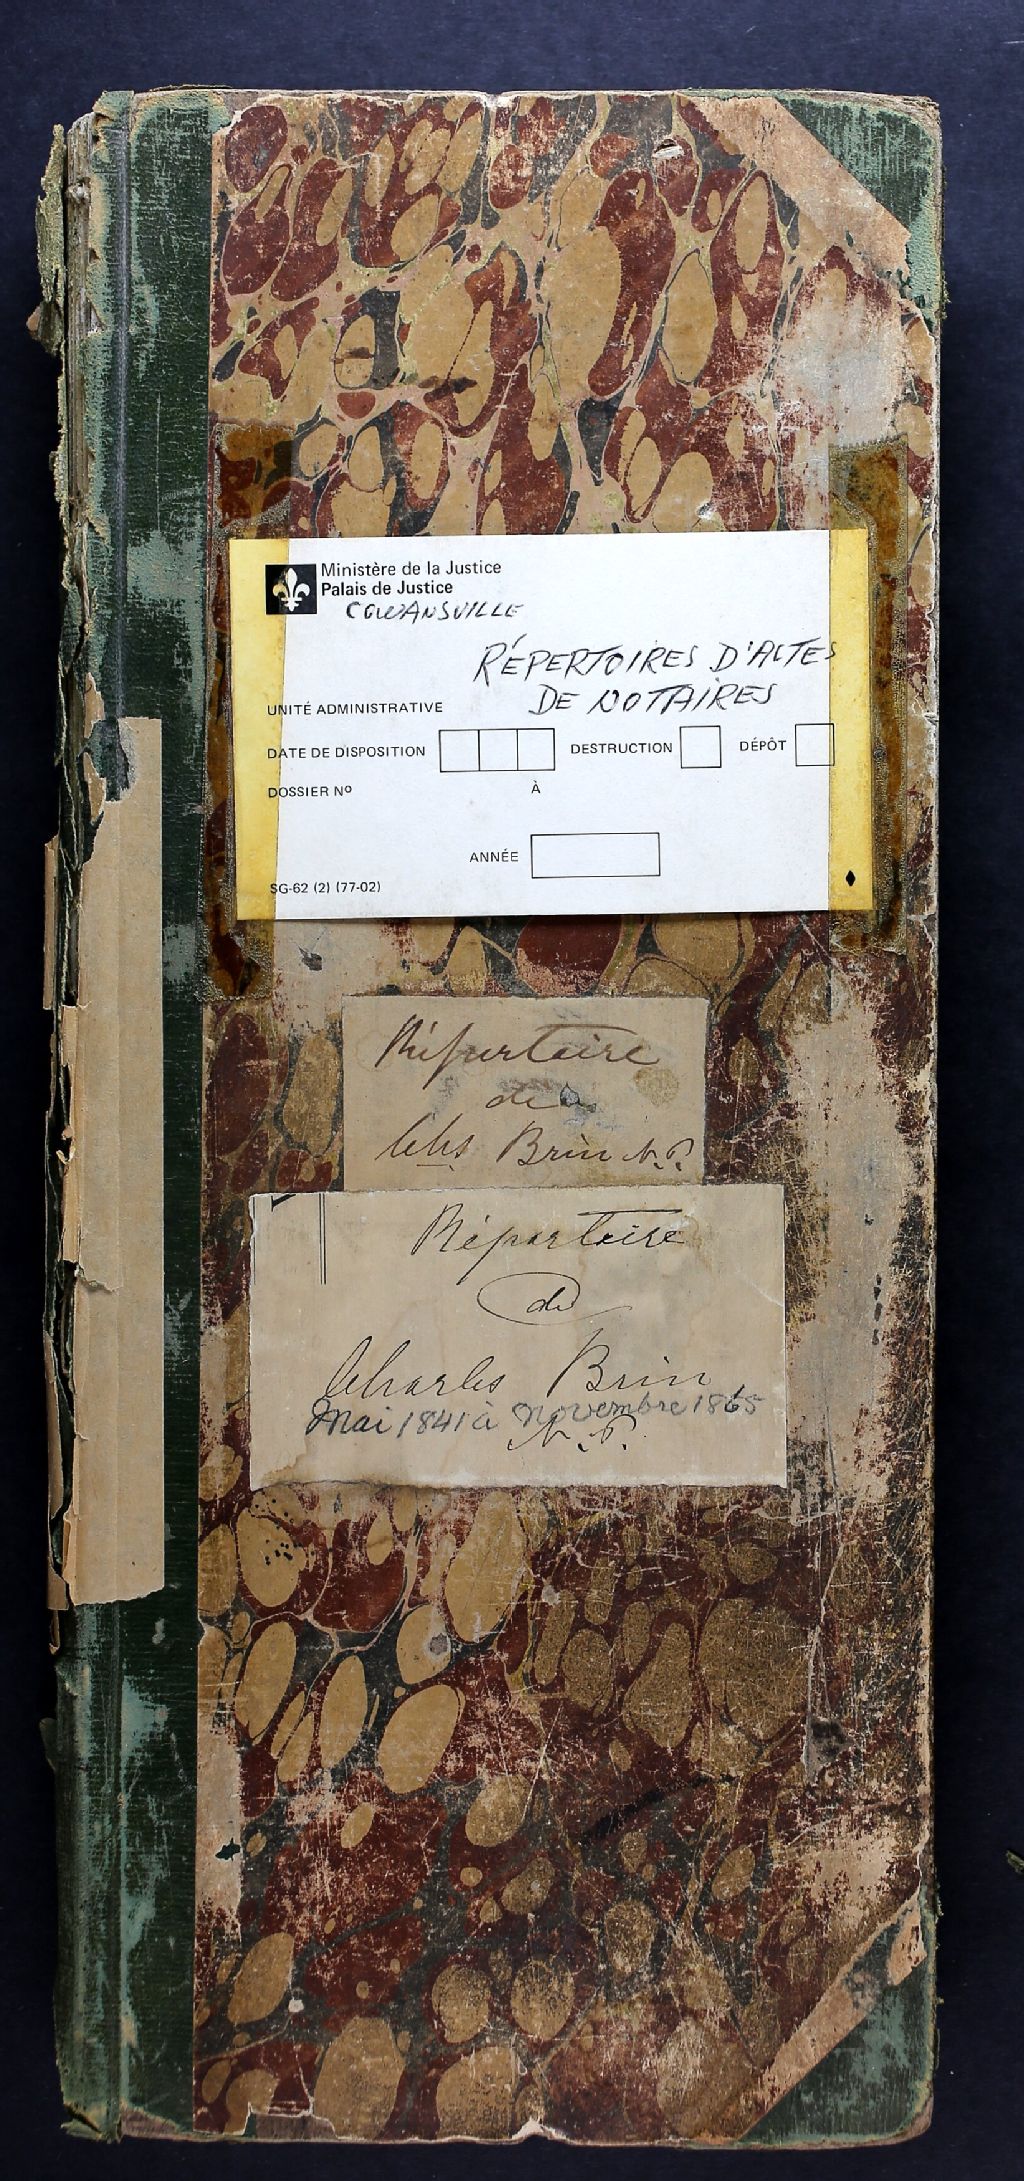 Ministère de la Justice
Palais de Justice
COWANSVILLE
RÉPERTOIRES D'ACTES
DE NOTAIRES
UNITÉ ADMINISTRATIVE
DATE DE DISPOSITION DESTRUCTION DÉPÔT
DOSSIER Nº À
ANNÉE
SG-62 (2) (77-02)
Répertoire
de
Chs Brin N.P.
Répertoire
de
Charles Brin
Mai 1841 à Novembre 1865
N.P.